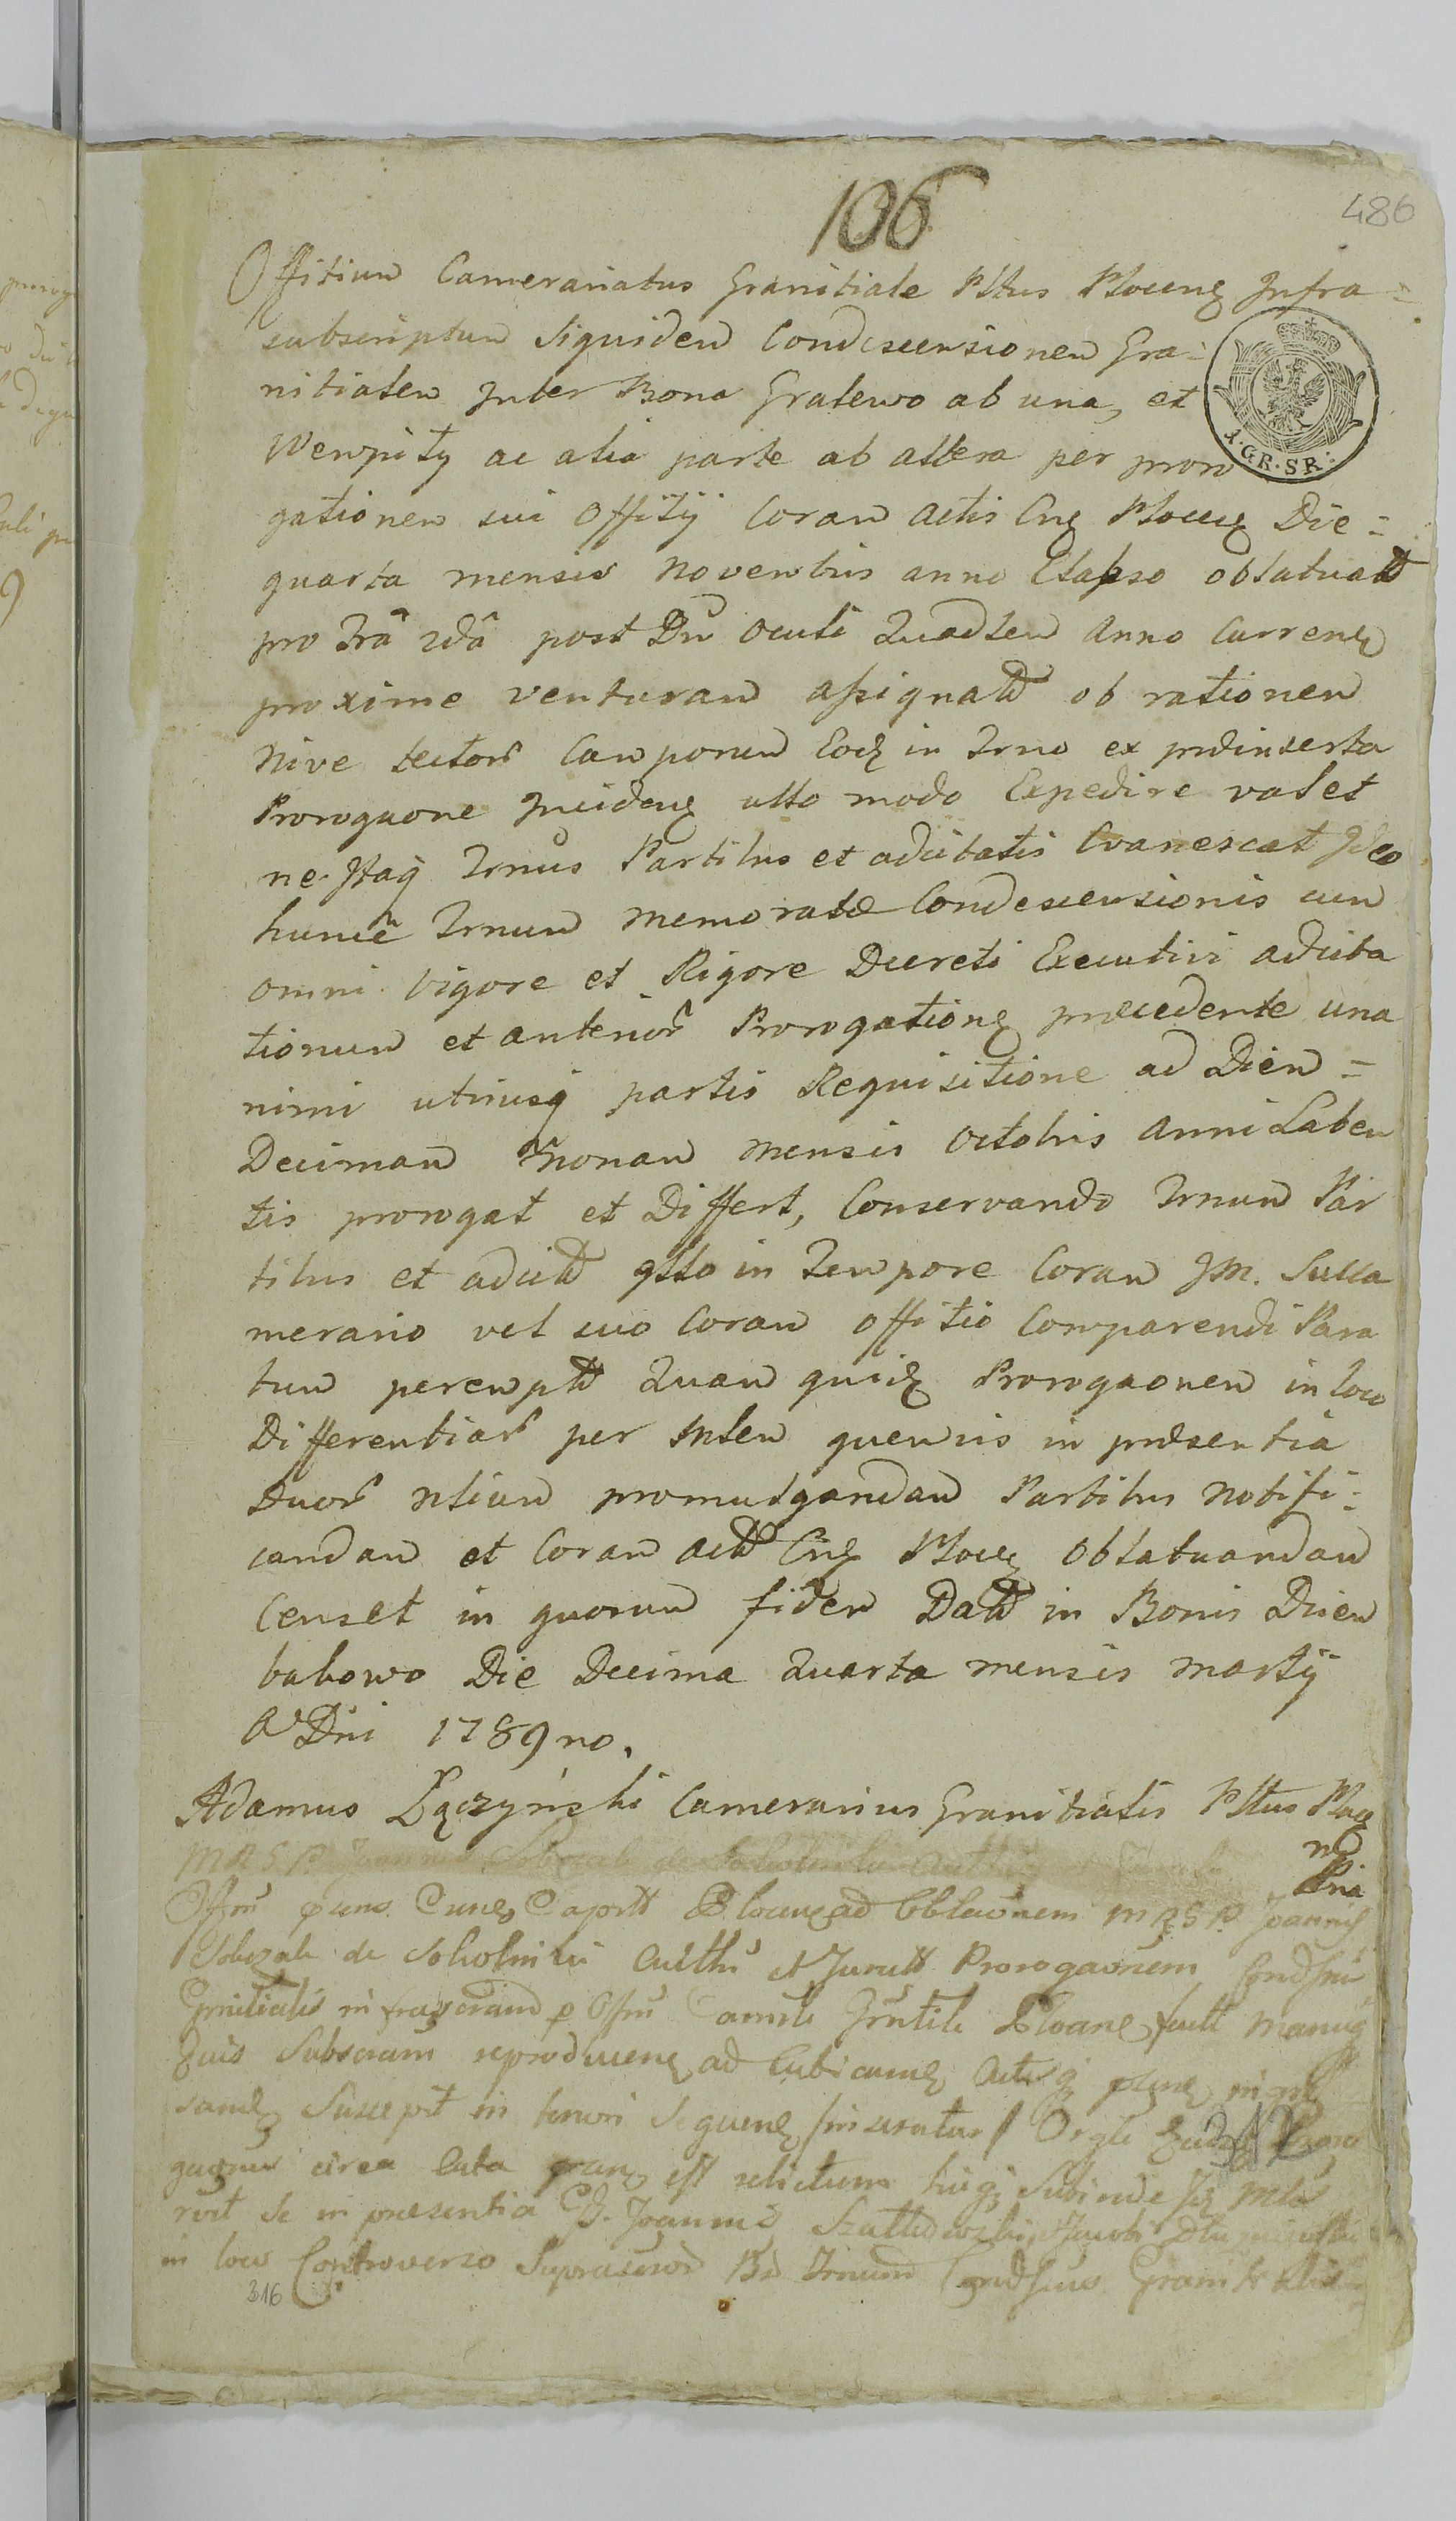 106
486
Offitium Camerariatus Granitiale Pltus Plocens Infra=
subscriptum Siquidem Condescensionem Gra=
nitialem Inter Bona Gralewo ab una, et
Wempiły ac alia parte ab altera per proro
gationem sui Offitij Coram Actis Cns Plocens Die=
quarta mensis Novembris anno Elapso oblatuatt
pro 3râ 2dâ post Dn̄ Oculi Quadlem Anno Currens
proxime venturam assignatt ob rationem
Nive tector Camporum Eodz in Trno ex prdinserta
Prorogaone Incidens ullo modo Expedire valet
ne Itaq Trnus Partibus et adcitatis Evanescat Ideo
huncē Trnum memoratæ Condescensionis cum
omni vigore et Rigore Decreti Executivi adcita
tionum et anterior Prorogations præcedente una
nimi utriusq partis Requisitione ad Diem=
Decimam Nonam mensis Octobris Anni Laben
tis prorogat et Differt, Conservando Trnum Par
tibus et adcitt qtto in Tempore Coram JM. Succa
merario vel suo Coram Offitio Comparendi Para
tum peremptt Quam quidz Prorogaonem in loco
Differentiar per Mlem quemvis in præsentia
Duor nlium promulgandam Partibus Notifi=
candam et Coram Actt Cns Plocens Oblatuandam
Censet in quorum fidem Datt in Bonis Drem
babowo Die Decima Quarta mensis Martij
Ao Dni 1789no.
Adamus Łączyński Camerarius Granitialis Pltus Ploc
MRSP
mp
Offm̄ Cune Captt Plocens ad Oblaōnem MRSP Joannis
de Sokolniki Cultū et Juratt Prorogaōnem Condsnis
Grnitialis infrascram p Offm̄ Camrle Grntile Plocane factt manuq
suis Subscram reproducens ad Actusq
sands Suscepit in tenori sequens /inseratur/ Orgle Proro
gaonis circa Acta prans est relictum huiq Subinde
rvit se in præsentia Joannis Jacobi
in loco Controverso Supracisor Bs Trnum Condsnis
312
316
A·GR·SR: